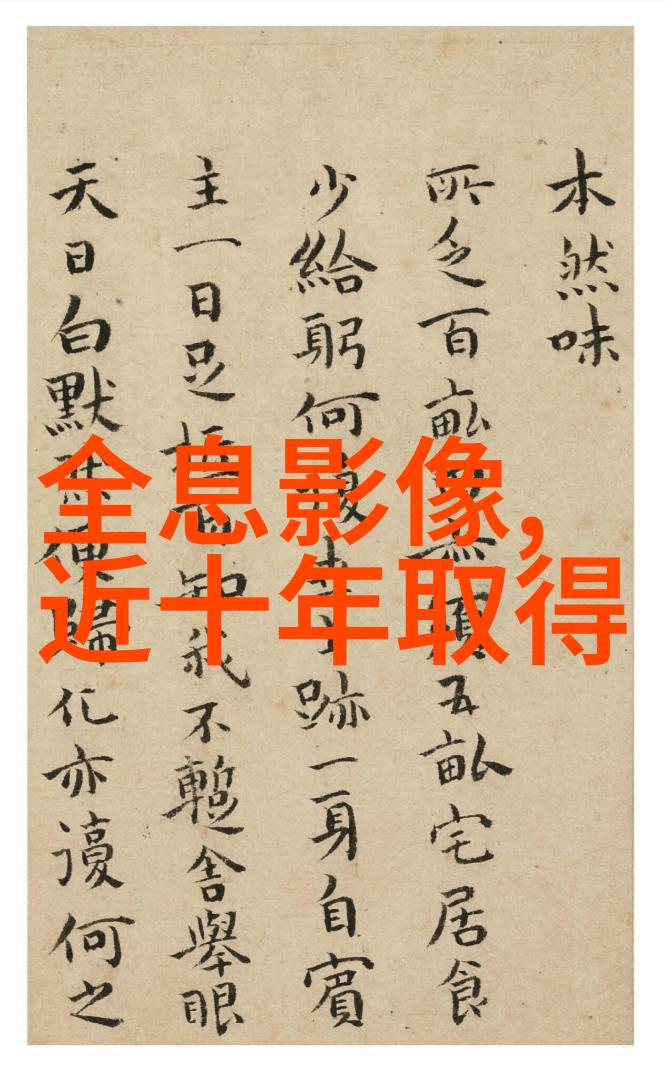 本然味
所乏百畝
五畝宅居食
少給躬何
跡一身自賓
主一日足
知我不暫舍舉眼
天日白默
歸化亦謾何之
全息影像，
近十年取得